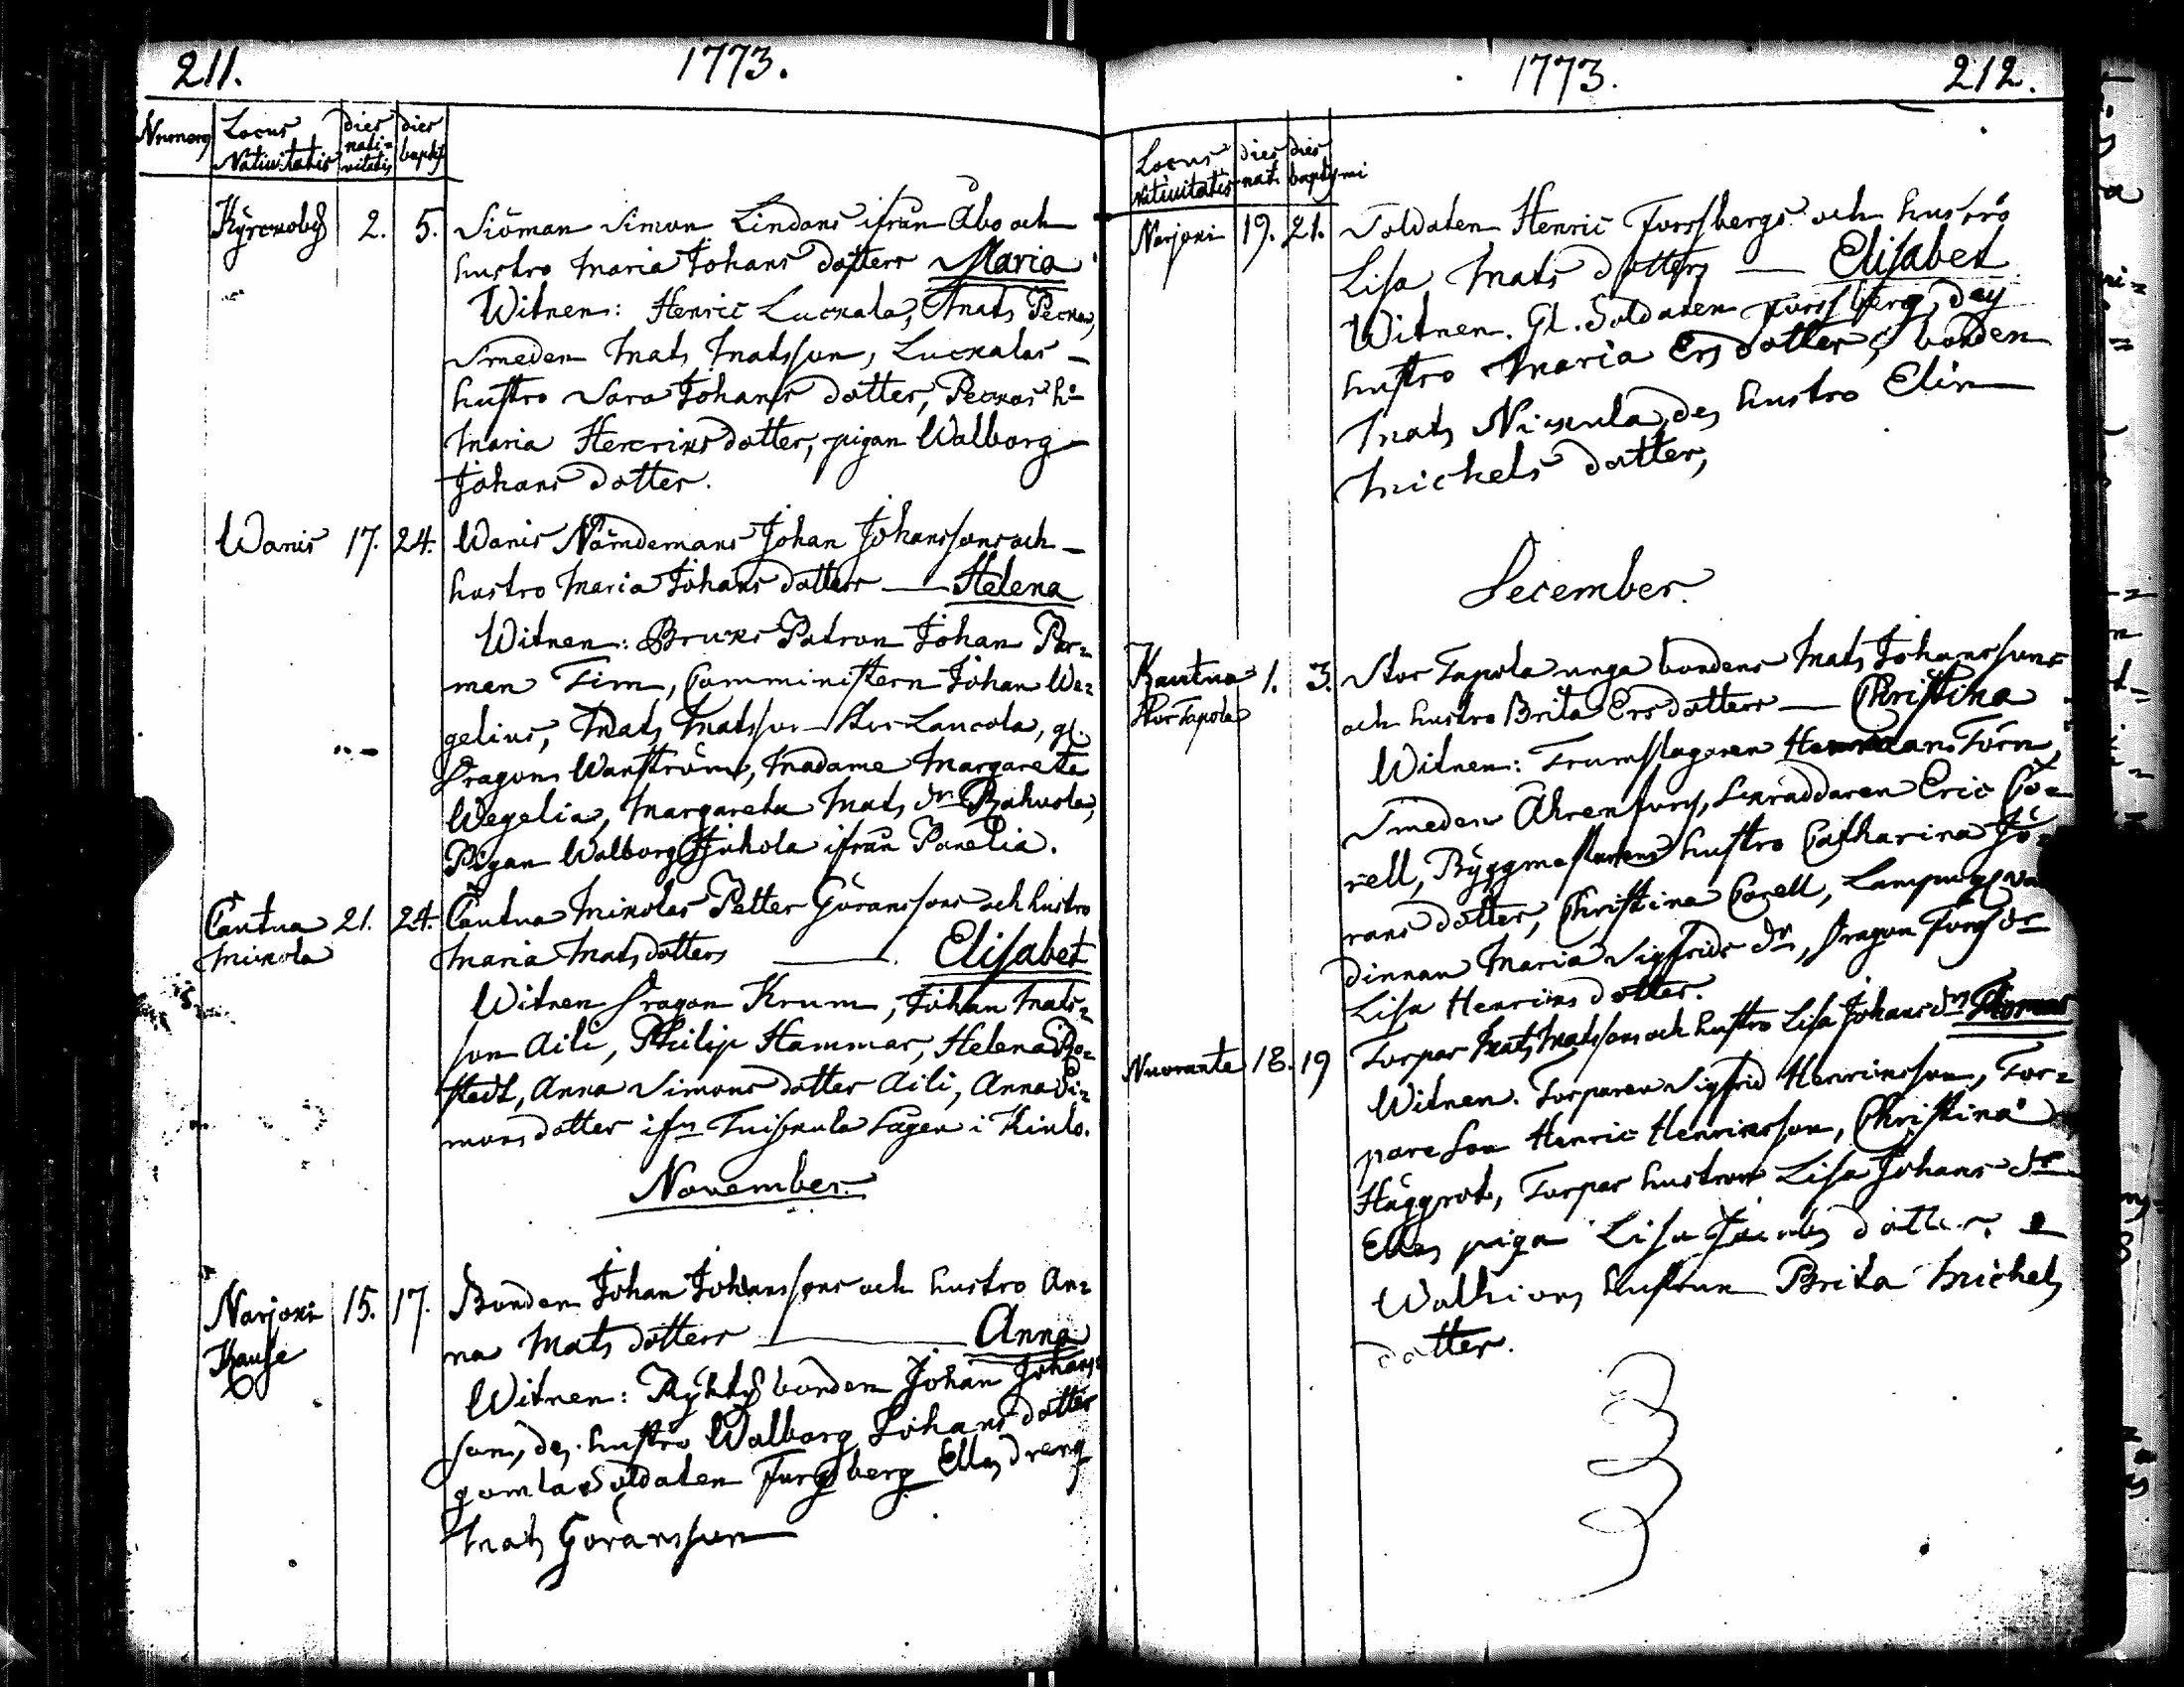 211.
1773.
Numerus Locus Nativitatis dies nativitatis dies bapt.
Kyrckoby 2. 5. Siöman Simon Lindans ifrån Åbo och
hustro Maria Johans dotters Maria
Witnen: Henric Luckala, Mats Pecka,
Smeden Mats Matsson, Luckalas
hustro Sara Johans dotter, Peckas h:o
Maria Henriks dotter, pigan Walborg
Johans dotter.
Wanis 17. 24. Wanis Nämdemans Johan Johanssons och
hustro Maria Johans dotters Helena
Witnen: Bruks Patron Johan Por=
men Tim, Comministern Johan We=
gelius, Mats Matsson Stor Laucola, gl.
Dragons Wanström, Madame Margareta
Wegelia, Margareta Mats dr Rahvola,
Pigan Walborg Juhola ifrån Panelia.
Cautua Mickola 21. 24. Cautua Mikolas Petter Göranssons och hustro
Maria Matsdotters Elisabet
Witnen Dragon Krum, Johan Mats=
son Aili, Philip Hammar, Helena Bo=
stedt, Anna Simons dotter Aili, Anna Si=
mons dotter ifn Tuiskula Sågen i Kiulo.
November.
Narjoki Kause 15. 17. Bonden Johan Johanssons och hustro An=
na Mats dotters Anna
Witnen: bonden Johan Johans=
son, des hustro Walborg Johans dotter
gamla Soldaten Forsberg Ellas dreng
Mats Göransson
1773.
212.
Locus nativitatis dies nat. dies baptismi
Narjoki 19. 21. Soldaten Henric Forssbergs och hustro
Lisa Mats dotters Elisabet
Witnen. Gl. Soldaten Forssberg, des
hustro Maria Ers dotter, bonden
Mats Niskula, des hustro Elin
Michels dotter,
December.
Kautua Stor Tapola 1. 3. Stor Tapola unga bondens Mats Johanssons
och hustro Brita Ersdotters Christina
Witnen: Trumslagaren Törn,
Smeden Åhrenfors, Skräddaren Eric Co=
rell, Byggmästarens hustro Catharina Jö=
rans dotter, Christina Corell,
dinnan Maria Sigfrids dr, Dragon Fors dr
Lisa Henriks dotter.
Nuorante 18. 19 Torpar Mats Matssons och hustro Lisa Johans drs Thomas
Witnen. Torparen Sigfrid Henricsson, Tor=
pare Son Henric Henricsson, Christina
Häggrot, Torpar hustrun Lisa Johans dr
Ellas piga Lisa Jacobs dotter
hustrun Brita Michels
dotter.